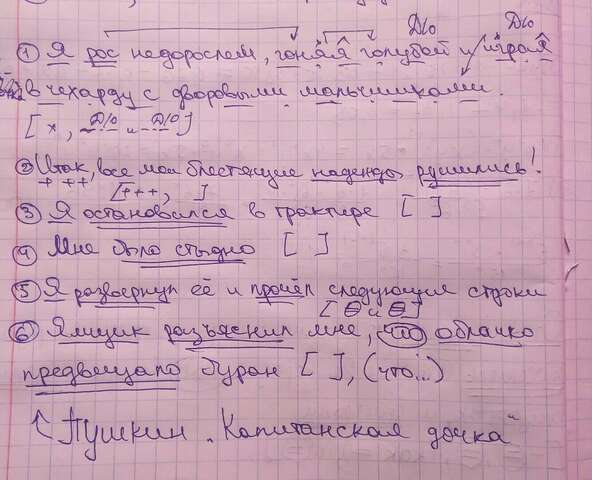 Д/о Д/о
① Я рос недорослем, гоняя голубей и играя
в чехарду с дворовыми мальчишками.
[ х, Д/О и Д/О ]
② Итак, все мои блестящие надежды рушились!
[+++, ]
③ Я остановился в трактире [ ]
④ Мне было стыдно [ ]
⑤ Я развернул её и прочёл следующие строки
[ ⊖ и ⊖ ]
⑥ Ямщик разъяснил мне, что облачко
предвещало буран [ ], (что...)
Пушкин „Капитанская дочка"